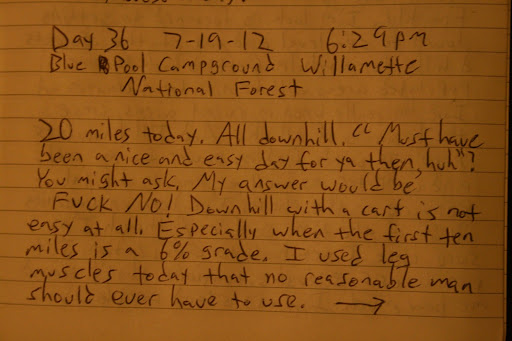 Day 36 7-19-12 6:29pm
Blue Pool Campground Willamette
National Forest
20 miles today. All downhill. "Must have
been a nice and easy day for ya then, huh"?
You might ask. My answer would be
FUCK NO! Downhill with a cart is not
easy at all. Especially when the first ten
miles is a 6% grade. I used leg
muscles today that no reasonable man
should ever have to use. →